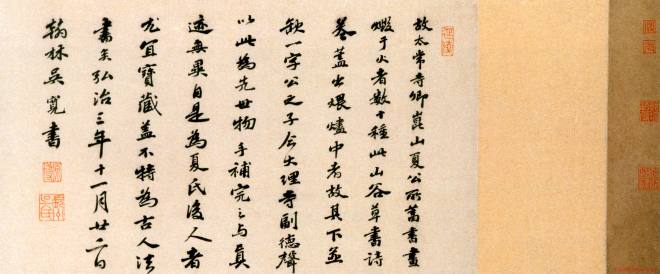 故太常寺卿崑山夏公所蓄書畫
燬于火者數十種此山谷草書詩
卷蓋出煨燼中者故其下並
缺一字公之子今大理寺副德聲
以此為先世物手補完之與真
迹無異自是為夏氏後人者
尤宜寶藏蓋不特為古人法
書矣弘治三年十一月廿二日
翰林吳寬書